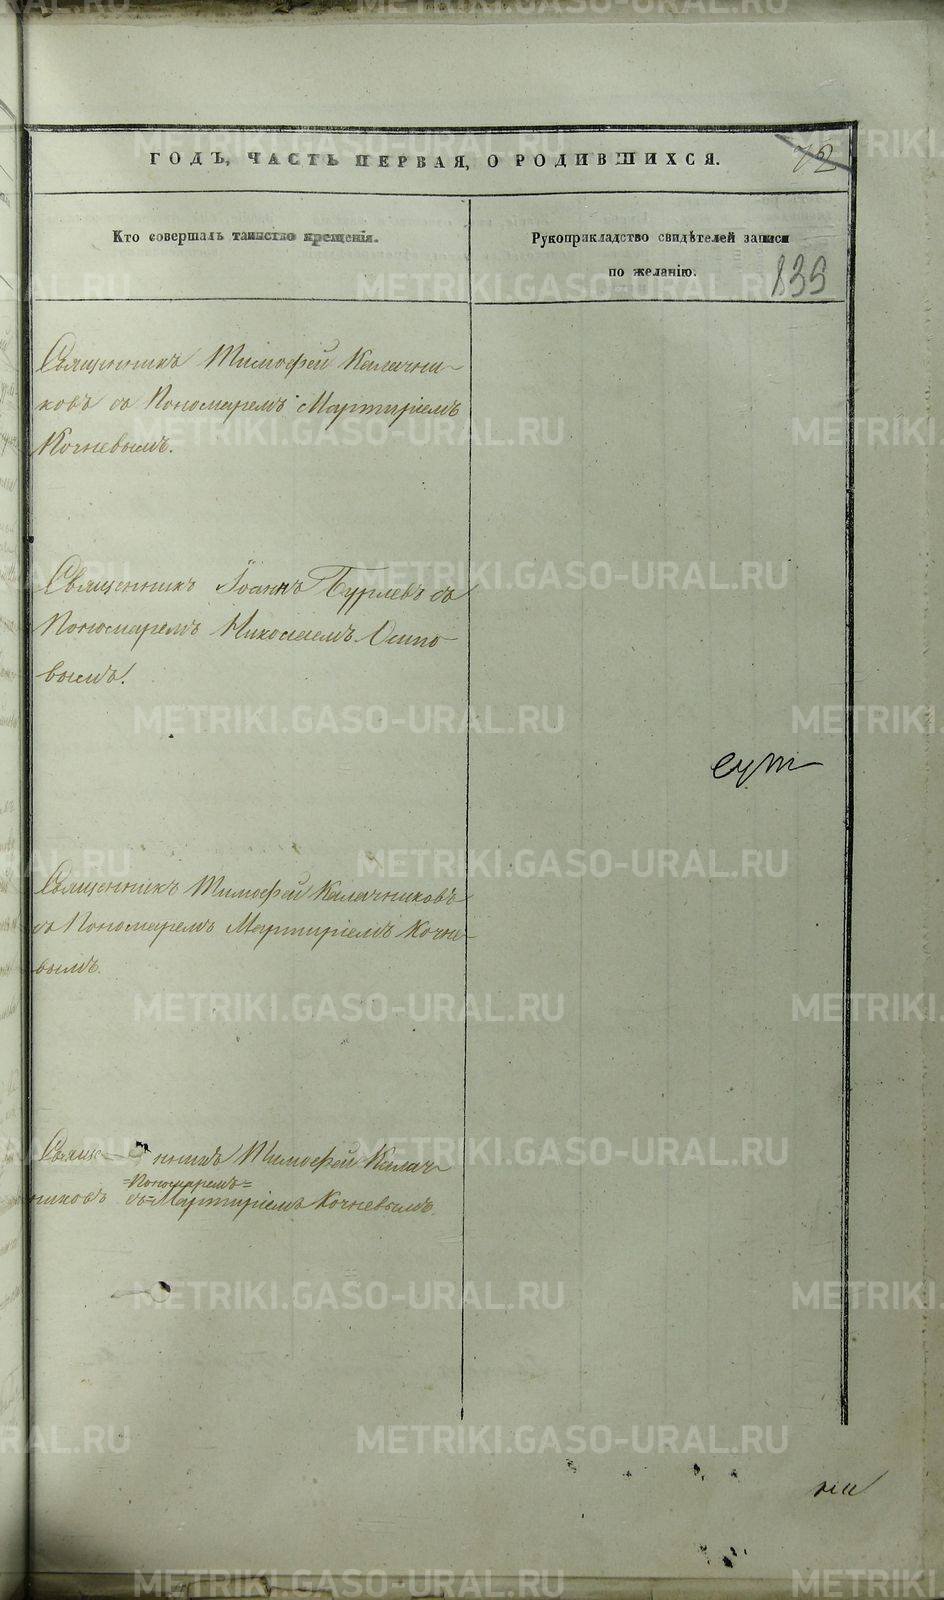 ГОДЪ, ЧАСТЬ ПЕРВАЯ, О РОДИВШИХСЯ.
72
Кто совершалъ таинство крещенія.
Рукоприкладство свидѣтелей записи
по желанію.
839
Священникъ Тимофей Калачни-
ковъ съ Пономаремъ Мартиріемъ
Кочневымъ.
Священникъ Іоаннъ Бурлевъ съ
Пономаремъ Николаемъ Осипо-
вымъ.
Священникъ Тимофей Калачниковъ
съ Пономаремъ Мартиріемъ Кочне-
вымъ.
Священникъ Тимофей Калач-
=Пономаремъ=
никовъ съ=Мартиріемъ Кочневымъ.
METRIKI.GASO-URAL.RU